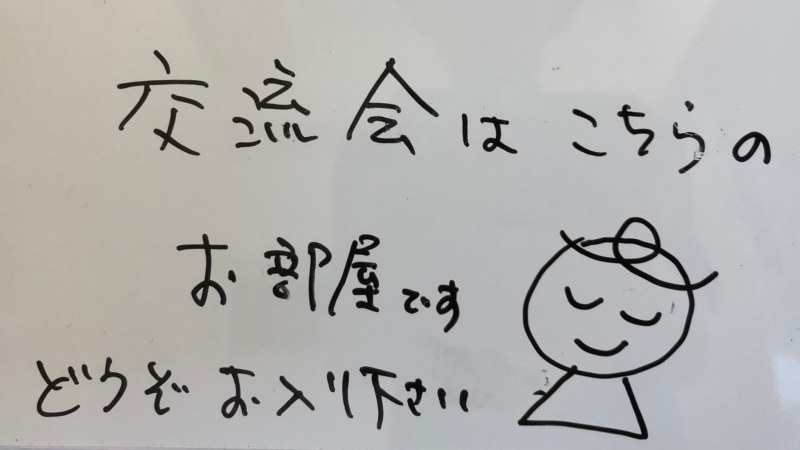 交流会は こちらの
お部屋です
どうぞ お入り下さい